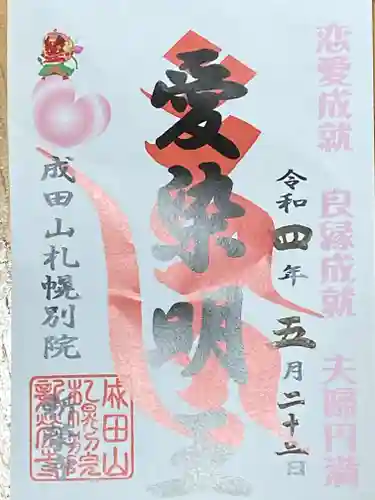 恋愛成就 良縁成就 夫婦円満
令和四年五月二十二日
愛染明王
成田山札幌別院
成田山
札幌別院